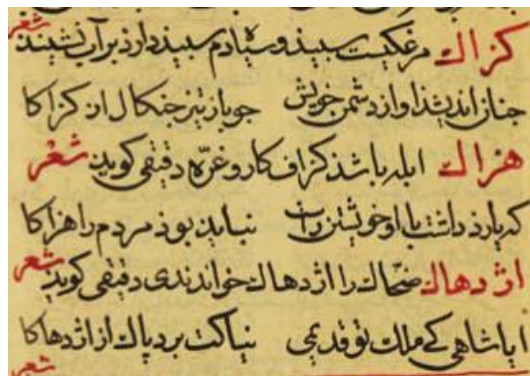 کزاك مرغکیست سبیذ و سیاه دم سبیذ دارذ بر آب نشیند شعر
جنان اندیشذ او از دشمن خویش جو باز تیز جنکال از کزاکا
هزاك ابله باشذ کزاف کار و غرّه دقیقی کوید شعر
که یارذ داشت با او خویشتن راست نباید بوذ مردم را هزاکا
اژدهاك ضحّاك را اژدهاك خواندندی دقیقی کوید شعر
ایا شاهی که ملك تو قدیمی نیاکت برد پاك از اژدهاکا
شعر